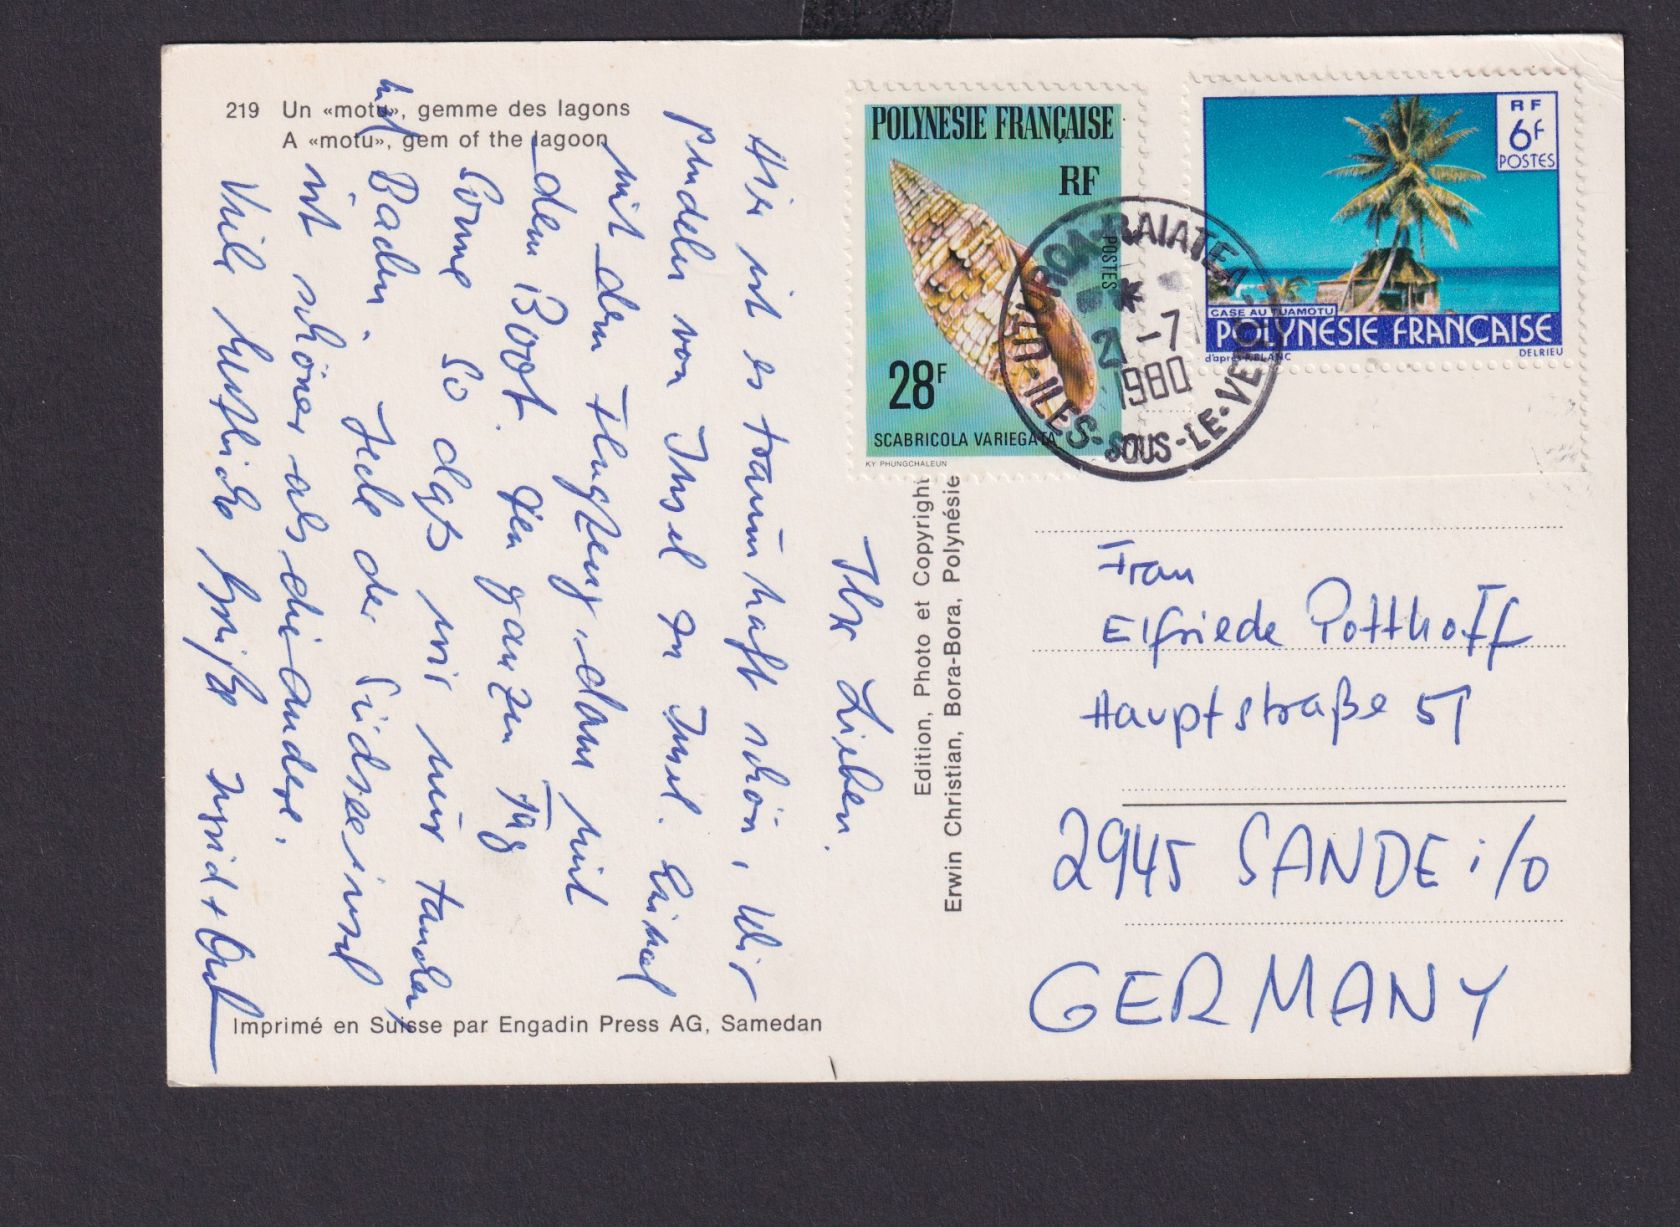 219 Un «motu», gemme des lagons
A «motu», gem of the lagoon
POLYNESIE FRANÇAISE
RF
POSTES
28F
SCABRICOLA VARIEGATA
KY PHUNGCHALEUN
RF
6F
POSTES
CASE AU TUAMOTU
POLYNESIE FRANÇAISE
d'après P. BLANC
DELRIEU
UTUROA-RAIATEA
-7
1980
ILES-SOUS-LE-VENT
Ihr Lieben.
Hier ist es traumhaft schön, Wir
pendeln von Insel zu Insel. Einmal
mit dem Flugzeug, dann mit
dem Boot. Den ganzen Tag
Sonne so daß wir nur faulen
und Baden. Jede der Südseeinsel
ist schöner als die andere.
Viele herzliche Grüße
Edition, Photo et Copyright
Erwin Christian, Bora-Bora, Polynésie
Frau
Elfriede Potthoff
Hauptstraße 51
2945 SANDE i/O
GERMANY
Imprimé en Suisse par Engadin Press AG, Samedan